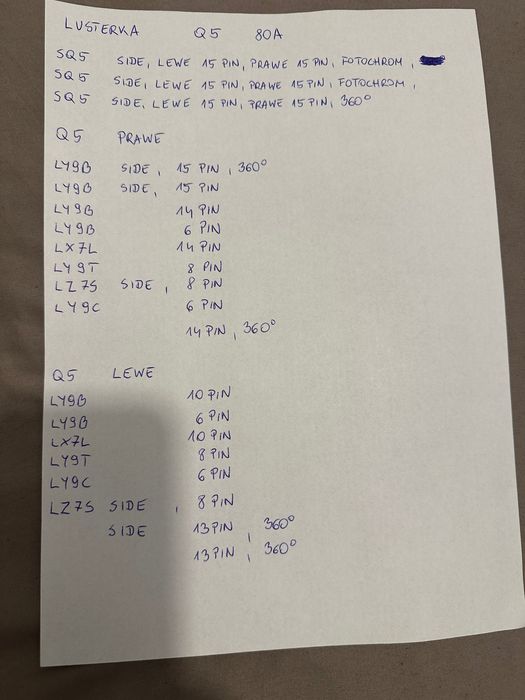 LUSTERKA Q5 80A
SQ5 SIDE, LEWE 15 PIN, PRAWE 15 PIN, FOTOCHROM,
SQ5 SIDE, LEWE 15 PIN, PRAWE 15 PIN, FOTOCHROM,
SQ5 SIDE, LEWE 15 PIN, PRAWE 15 PIN, 360°
Q5 PRAWE
LY9B SIDE, 15 PIN, 360°
LY9B SIDE, 15 PIN
LY9B 14 PIN
LY9B 6 PIN
LX7L 14 PIN
LY9T 8 PIN
LZ7S SIDE, 8 PIN
LY9C 6 PIN
14 PIN, 360°
Q5 LEWE
LY9B 10 PIN
LY9B 6 PIN
LX7L 10 PIN
LY9T 8 PIN
LY9C 6 PIN
LZ7S SIDE, 8 PIN
SIDE 13 PIN, 360°
13 PIN, 360°